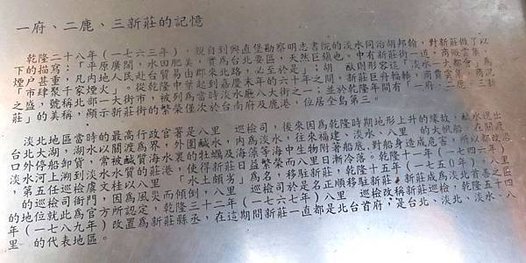 一府、二鹿、三新莊的記憶
乾隆二十八年（一七六三年），親自到興直堡勘察明志書院的淡水同治胡邦翰，對新莊做了以
下的描寫：「平原廣闊，水田肥美，實為台北要區，天然巨鎮也。中有新莊街一道，商販雲集，
煙戶甚眾，凡內地人民赴台貿易由郡來北路，必至於是
「市肆聚千家煙火」，從乾隆中葉起到嘉慶末年的六十年之間，新莊巨舟輻輳，商賈雲集，商務
之盛，號稱北部一大街市，被列為當時淡水廳八大街之一；並於乾隆年間有「一府、二鹿、三新
莊」的美稱，顯示新莊街的繁榮僅次於台南府及鹿港，位居全島第三。
淡北地區當時的最高行政官署是八里　巡檢司，後來因為乾隆時期地形上升的緣故，
台北大湖，湖水以關渡為界，外圍鹹水，內為淡水，往來福建、淡水、八里　的大帆船，
口外停船卸貨，常被鹹質海水裏的牡蠣及海藻等海中生物附著船底，對船身造成危害，
淡水河上溯到淡水水質的莊港，使得新莊日益繁榮而八里日漸冷落。乾隆十一年（一七四六年）
，第五任巡檢虞文桂以八里　「水土頗劣」為名，移駐新莊，乾隆十五年（一七五〇年）八里
的巡檢司衙門，因為風災而傾倒，八里　巡檢司於是名正順移駐新莊，新莊成為淡北首善之區
的地位就此為官方所認定，乾隆三十二年（一七六七年）八里　巡檢改稱新莊巡檢，乾隆五十四
年（一七八九年）改置為新莊縣丞，在這期間新莊一直都是北台首府，是台北、淡北、淡水、八
里　的代表地區。